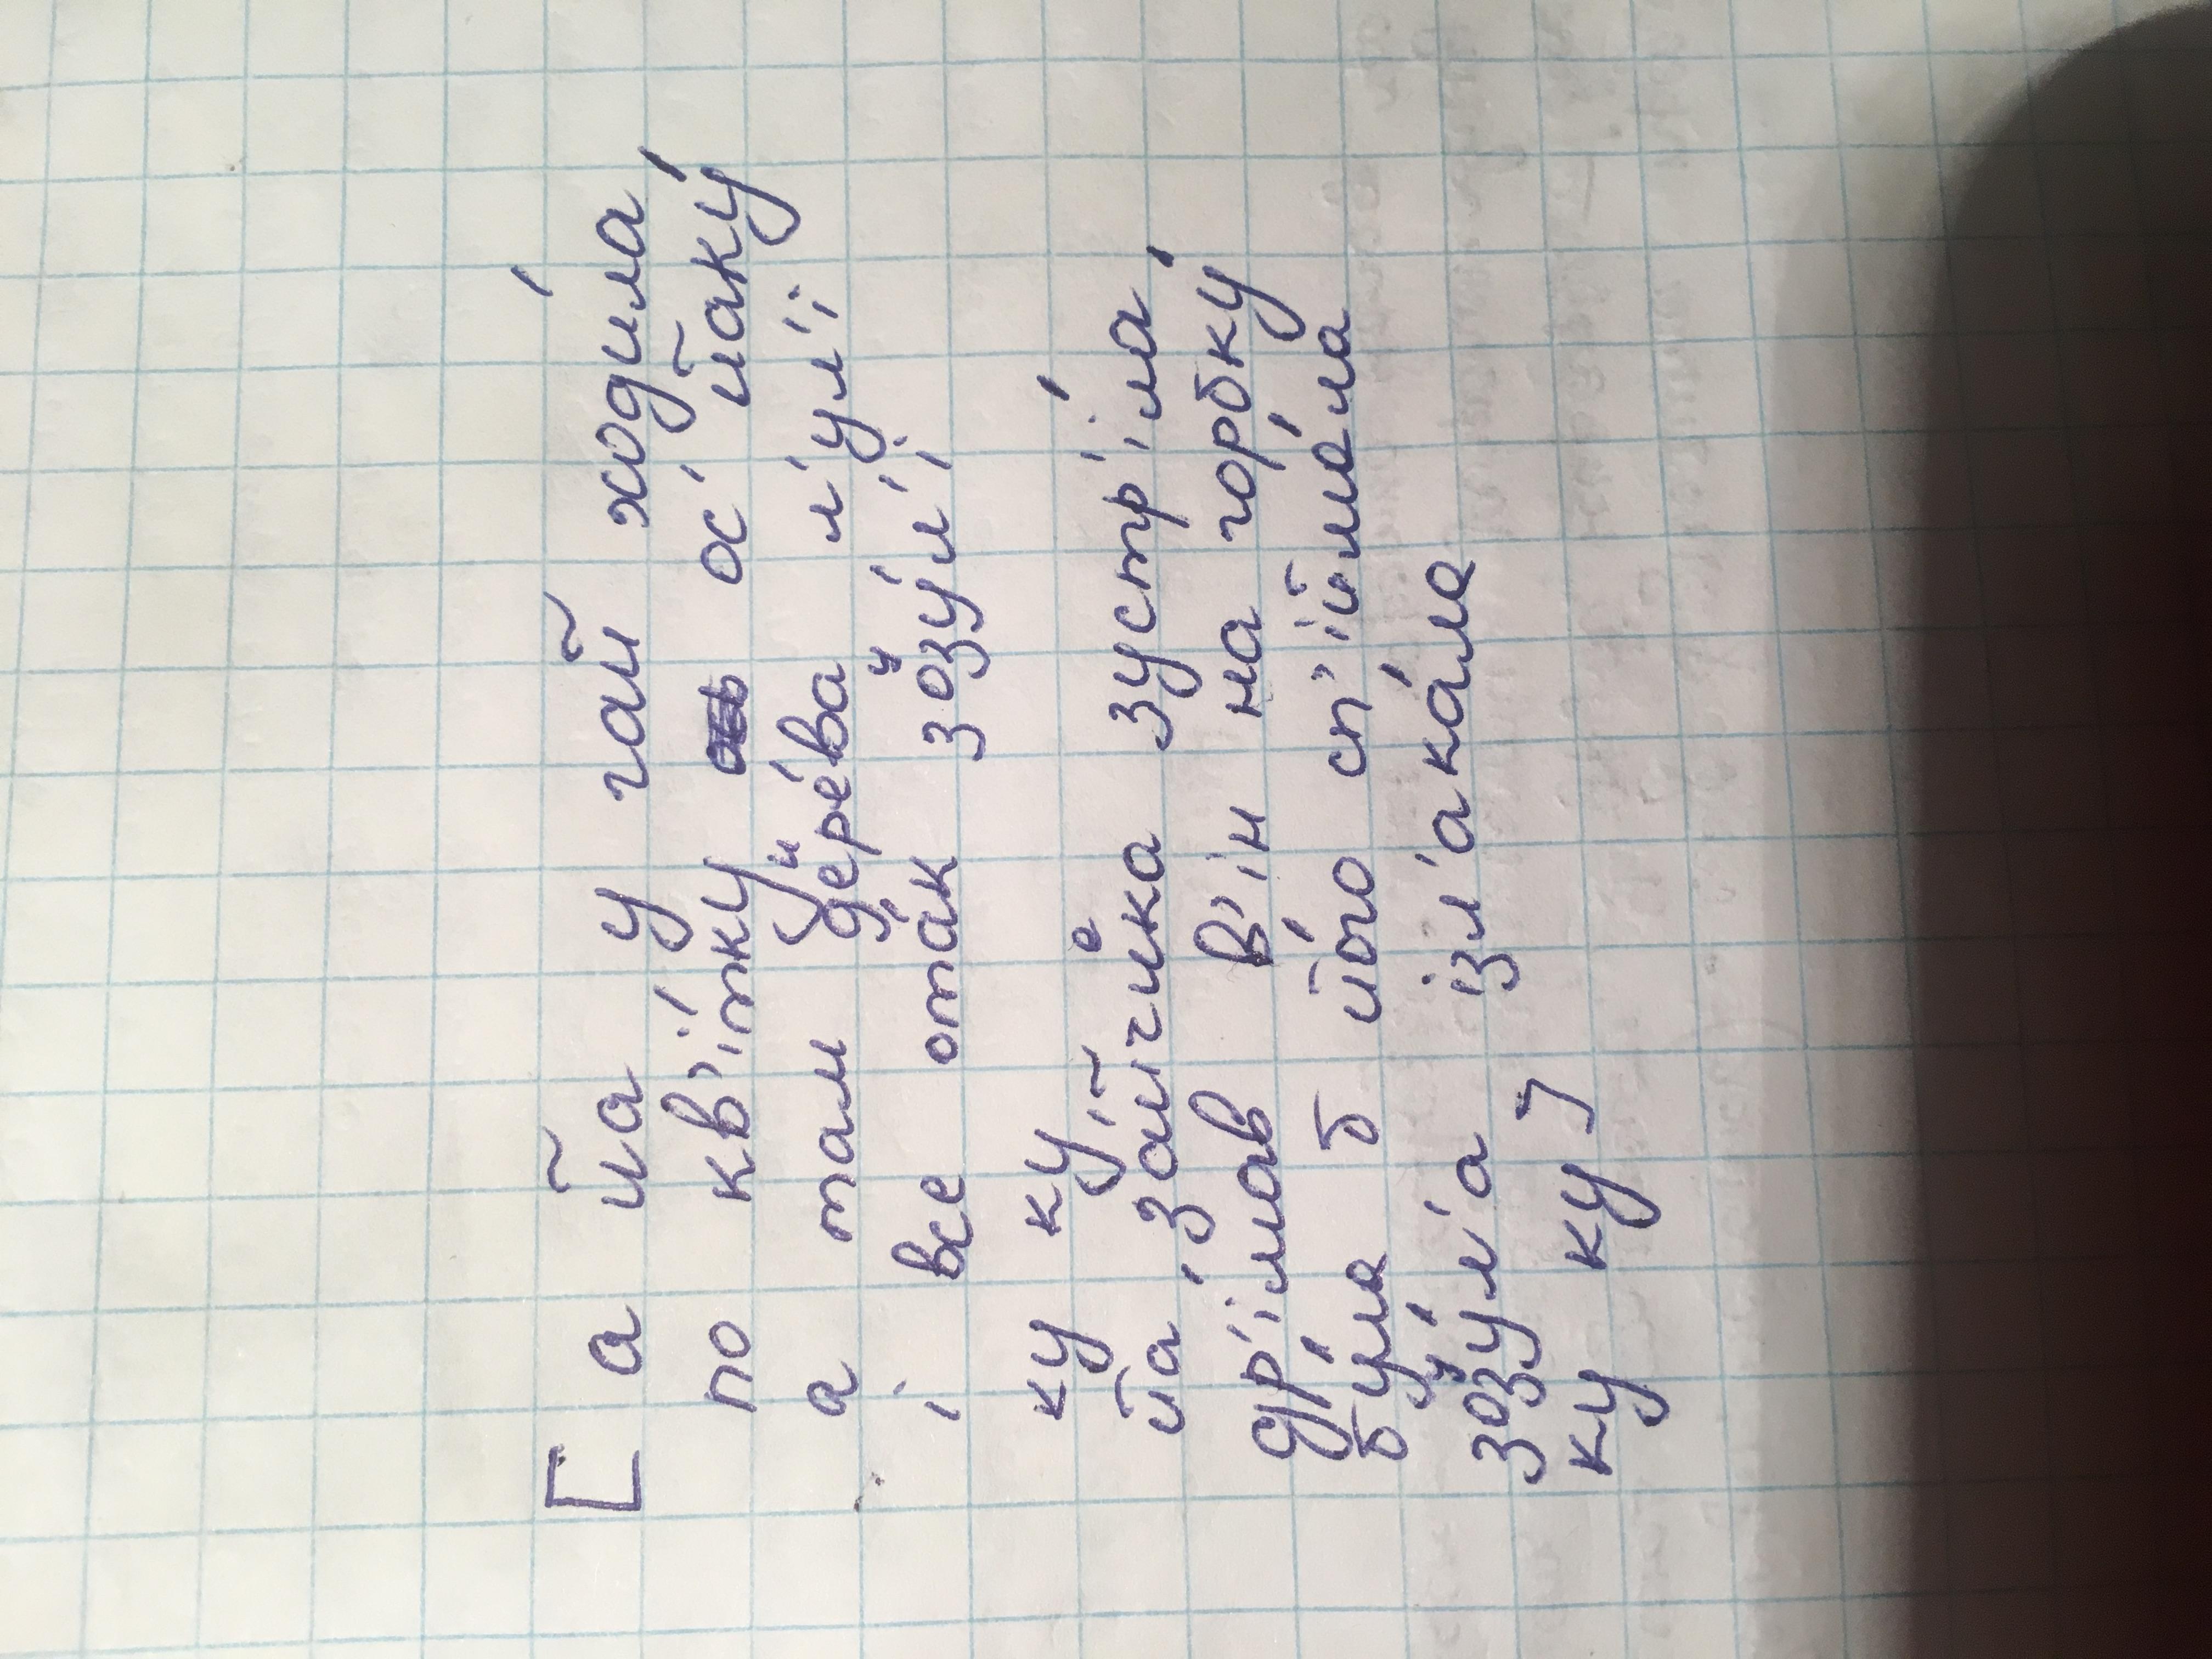 [ а йа у гай ходи́ла
по кв'і́тку ос' йаку́
а там деᵘре́ва л'у́л'і
і все ота́к зоᵘзу́л'і
ку ку
йа за́йчиᵉка зустр'і́ла
др'іма́в в'ін на горбку́
була́ б його́ сп'ійма́ла
зоᵘзу́л'а ізл'ака́ла
ку ку ]